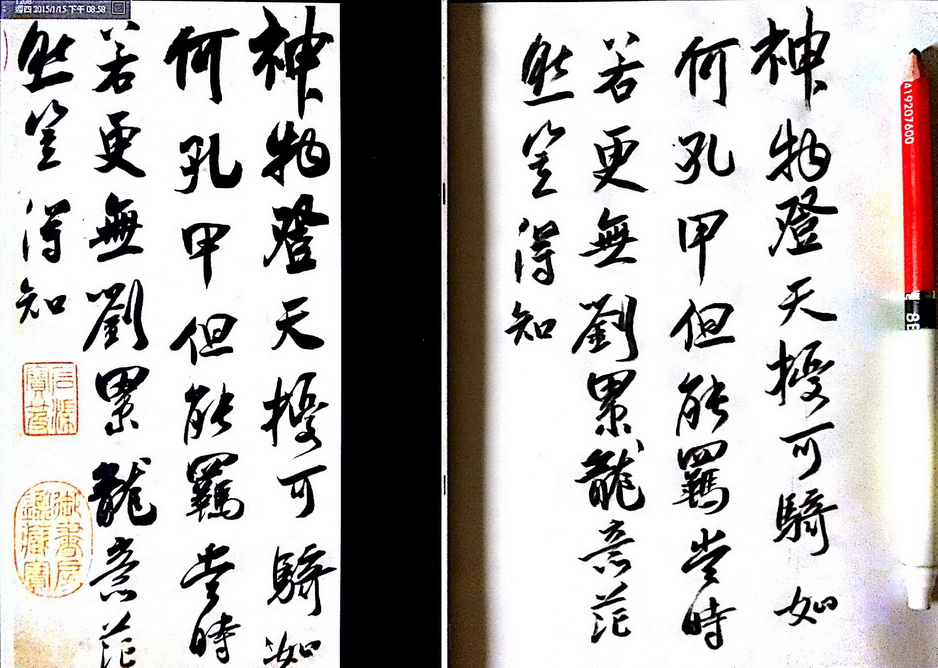 週四 2015/1/15 下午 08:58
神物登天擾可騎如
何孔甲但能羈當時
若更無劉累龍意茫
然豈得知
石渠寶笈
御書房鑑藏寶
神物登天擾可騎如
何孔甲但能羈當時
若更無劉累龍意茫
然豈得知
419207600